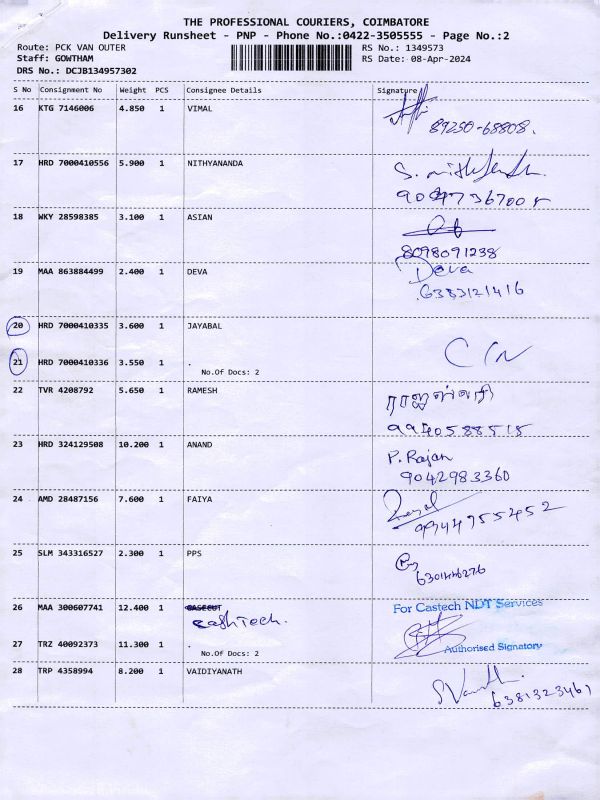 THE PROFESSIONAL COURIERS, COIMBATORE
Delivery Runsheet - PNP - Phone No.:0422-3505555 - Page No.:2
Route: PCK VAN OUTER RS No.: 1349573
Staff: GOWTHAM RS Date: 08-Apr-2024
DRS No.: DCJB134957302
S No Consignment No Weight PCS Consignee Details Signature
16 KTG 7146006 4.850 1 VIMAL
89250-68808.
17 HRD 7000410556 5.900 1 NITHYANANDA
18 WKY 28598385 3.100 1 ASIAN
8098091238
19 MAA 863884499 2.400 1 DEVA Deva
6383121416
20 HRD 7000410335 3.600 1 JAYABAL
21 HRD 7000410336 3.550 1 .
No.Of Docs: 2
22 TVR 4208792 5.650 1 RAMESH
ராஜேஸ்வரி
9940588515
23 HRD 324129508 10.200 1 ANAND P. Rajan
9042983360
24 AMD 28487156 7.600 1 FAIYA
9944755452
25 SLM 343316527 2.300 1 PPS
26 MAA 300607741 12.400 1 For Castech NDT Services
CashTech.
27 TRZ 40092373 11.300 1 . Authorised Signatory
No.Of Docs: 2
28 TRP 4358994 8.200 1 VAIDIYANATH
6381323467